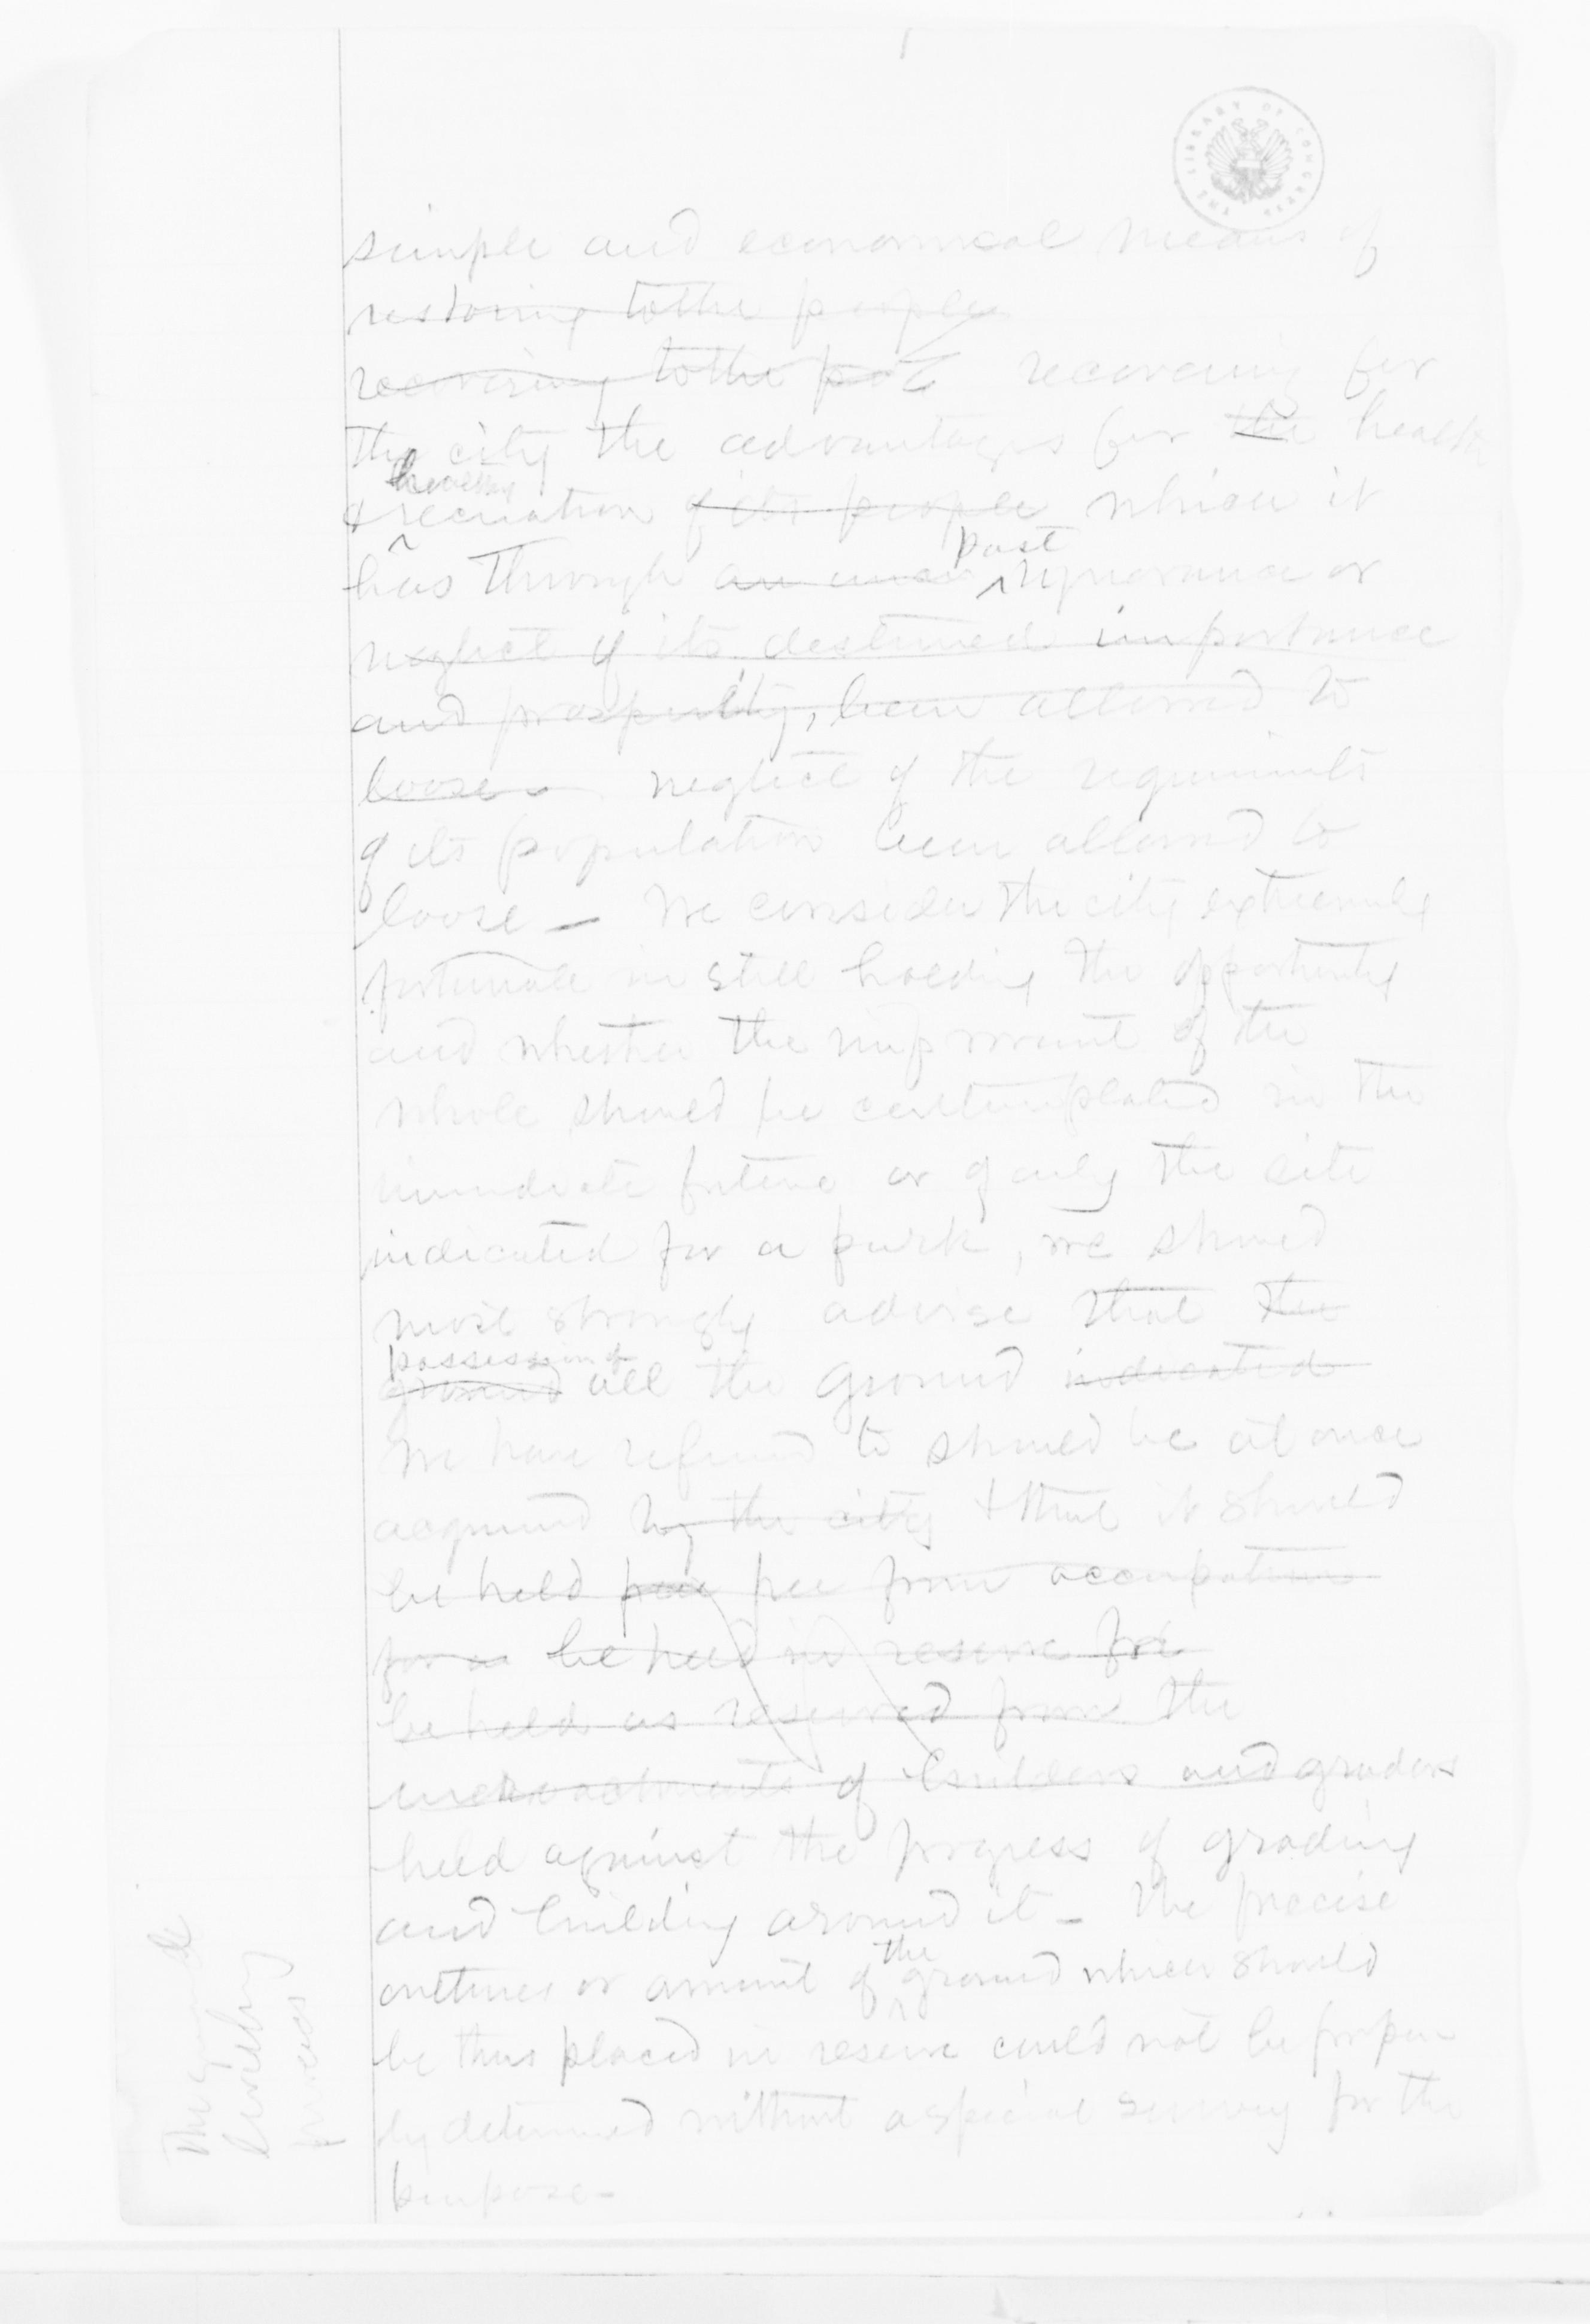 THE LIBRARY OF CONGRESS
simple and economical means of
restoring to the people
recovering to the recovering for
the city the advantages for the health
healthy
& recreation of its people which it
past
has through an ignorance or
neglect of its destined importance
and prosperity, been allowed to
loose neglect of the requirments
of its population been allowed to
loose - We consider the city extremely
fortunate in still holding the opportunity
and whether the improvment of the
whole should be contemplated in the
immediate future or of only the site
indicated for a park, we should
most strongly advise that the
possession of
ground all the ground indicated
we have refered to should be at once
acquired by the city & that it should
be held free from occupation
for be held in reserve for
be held as reserved from the
encroachments of builders and graders
held against the progress of grading
and building around it - The precise
the
outlines or amount of ground which should
be thus placed in reserve could not be proper
ly determined without a special survey for the
purpose -